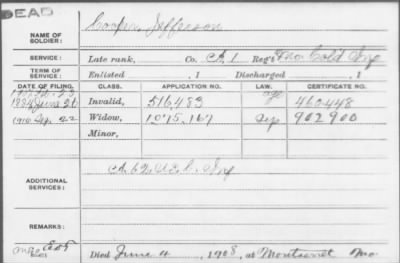 DEAD
NAME OF SOLDIER: Cooper, Jefferson
SERVICE: Late rank, Co. A, 1 Reg't Mo. Cold Inf
TERM OF SERVICE: Enlisted , 1 Discharged , 1
DATE OF FILING. CLASS. APPLICATION NO. LAW. CERTIFICATE NO.
1884 June 26 Invalid, 516,483 460448
1910 Sep. 22 Widow, 1075,167 902900
Minor,
ADDITIONAL SERVICES: A. 62 U.S.C. Inf
REMARKS:
Died June 4, 1908, at Montserrat Mo